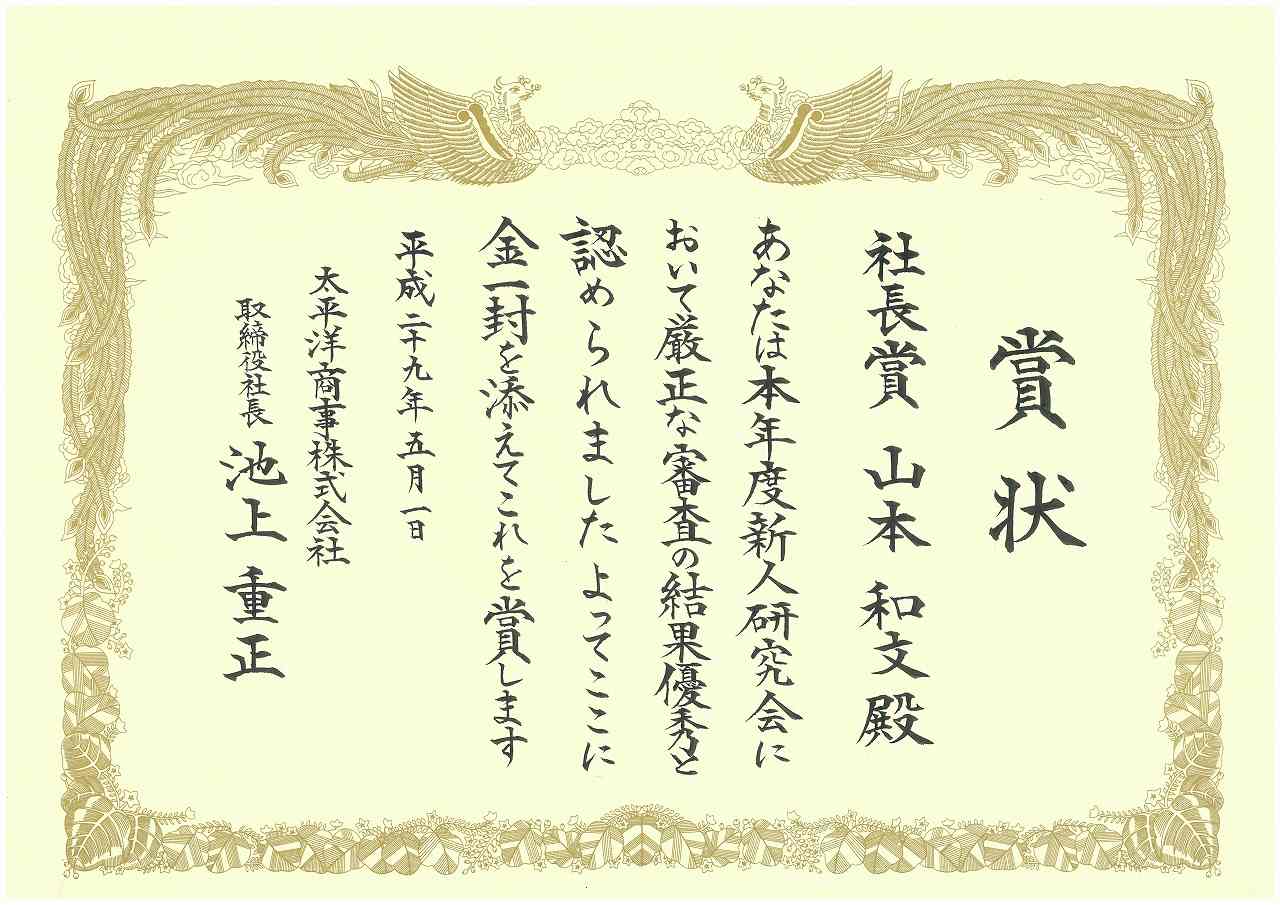 賞状
社長賞 山本 和文 殿
あなたは本年度新人研究会に
おいて厳正な審査の結果優秀と
認められましたよってここに
金一封を添えてこれを賞します
平成二十九年五月一日
太平洋商事株式会社
取締役社長 池上 重正